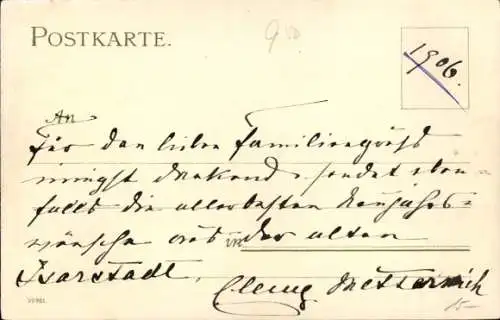 POSTKARTE.
9 50
1906.
An
Für den lieben Familiengruß
innigst dankend, sendet eben
falls die allerbesten Neujahrs=
wünsche aus in der alten
Isarstadt, Clemens Metternich
15-